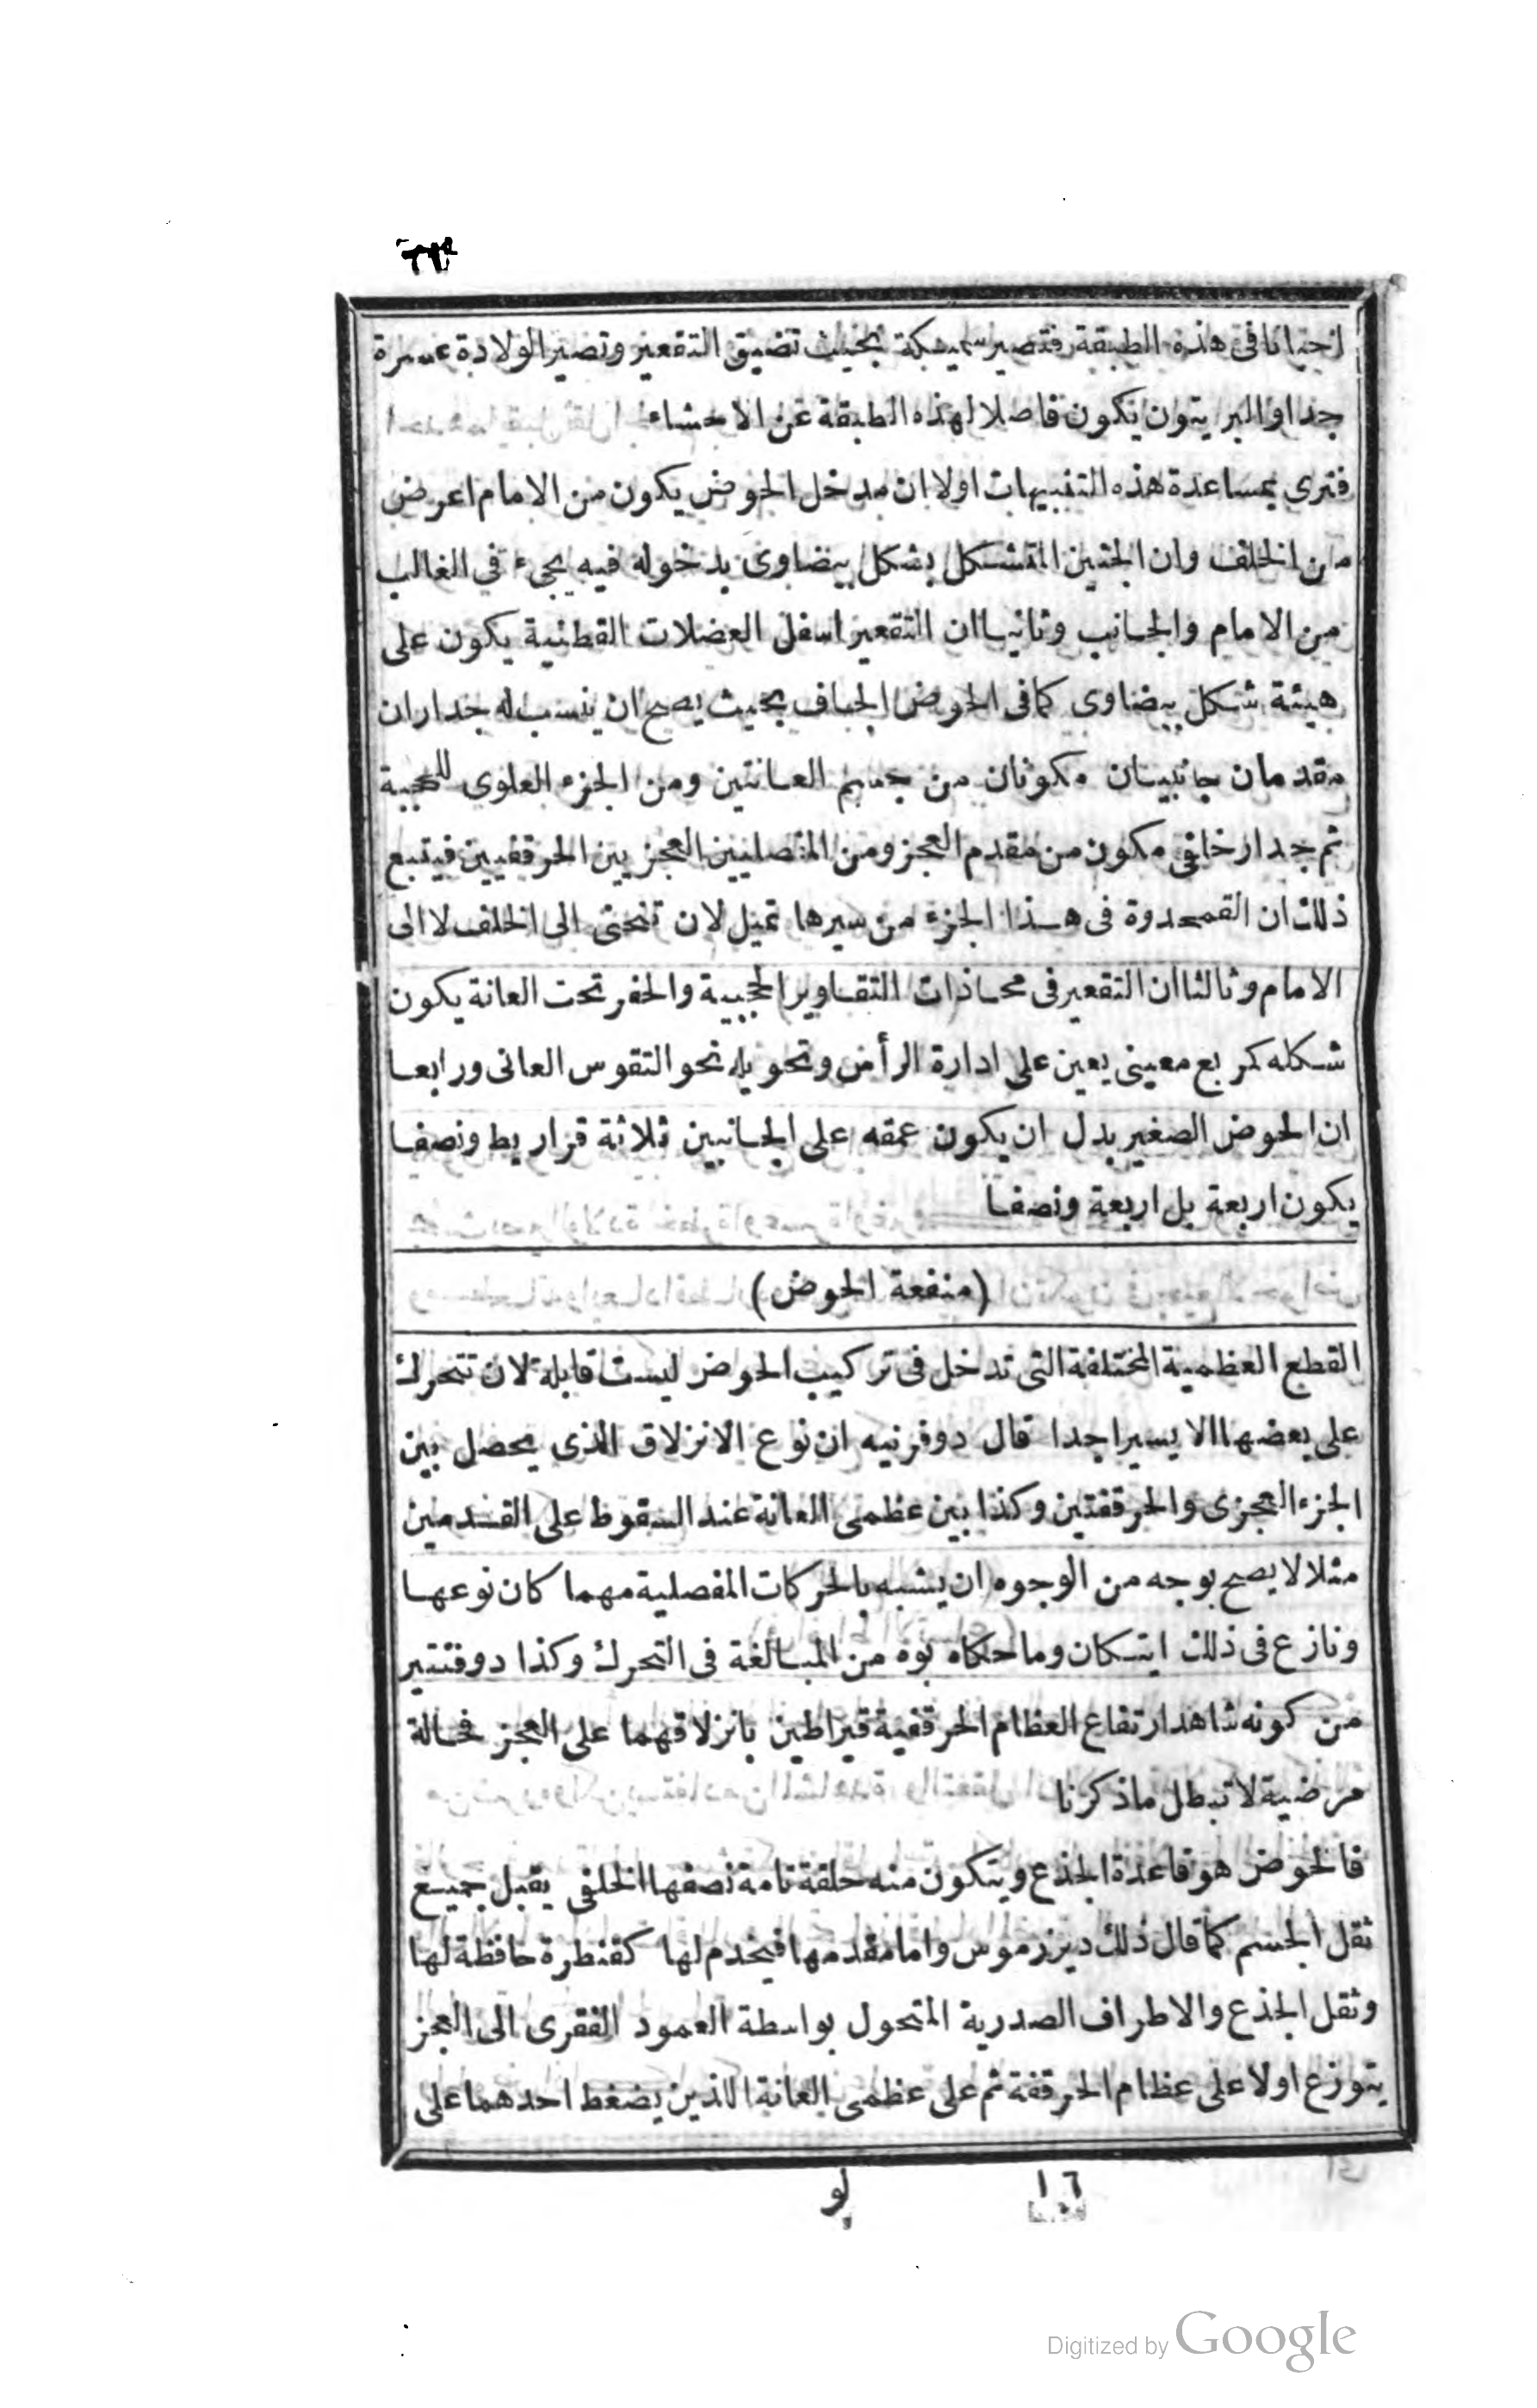 احيانا فى هذه الطبقة فتصير سميكة بحيث تضيق التقعير وتصير الولادة عسرة
جدا والبريتون يكون فاصلا لهذه الطبقة عن الاحشاء
فترى بمساعدة هذه التنبيهات اولا ان مدخل الحوض يكون من الامام اعرض
من الخلف وان الجنين المتشكل بشكل بيضاوى بدخوله فيه يجىء فى الغالب
من الامام والجانب وثانيا ان التقعير اسفل العضلات القطنية يكون على
هيئة شكل بيضاوى كما فى الحوض الجاف بحيث يصح ان ينسب له جداران
مقدمان جانبيان مكونان من جسم العانتين ومن الجزء العلوى للحجبة
ثم جدار خلفى مكون من مقدم العجز ومن المتصليين العجزيين الحرقفيين فيتبع
ذلك ان القمحدوة فى هذا الجزء من سيرها تميل لان تنحنى الى الخلف لا الى
الامام وثالثا ان التقعير فى محاذات التقاوير الحجبية والحفر تحت العانة يكون
شكله كمربع معينى يعين على ادارة الرأس وتحويله نحو التقوس العانى ورابعا
ان الحوض الصغير بدل ان يكون عمقه على الجانبين ثلاثة قراريط ونصفا
يكون اربعة بل اربعة ونصفا
(منفعة الحوض)
القطع العظمية المختلفة التى تدخل فى تركيب الحوض ليست قابلة لان تتحرك
على بعضها الا يسيرا جدا قال دوفرنيه ان نوع الانزلاق الذى يحصل بين
الجزء العجزى والحرقفتين وكذا بين عظمى العانة عند السقوط على القدمين
مثلا لا يصح بوجه من الوجوه ان يشبه بالحركات المفصلية مهما كان نوعها
ونازع فى ذلك ايتكان وما حكاه بوه من المبالغة فى التحرك وكذا دوفنتير
من كونه شاهد ارتفاع العظام الحرقفية قيراطين بانزلاقهما على العجز فحالة
مرضية لا تبطل ما ذكرنا
فالحوض هو قاعدة الجذع ويتكون منه حلقة تامة نصفها الخلفى يقبل جميع
ثقل الجسم كما قال ذلك ديزرموس واما مقدمها فيخدم لها كقنطرة حافظة لها
وثقل الجذع والاطراف الصدرية المتحول بواسطة العمود الفقرى الى العجز
يتوزع اولا على عظام الحرقفة ثم على عظمى العانة اللذين يضغط احدهما على
١٦ لو
Digitized by Google